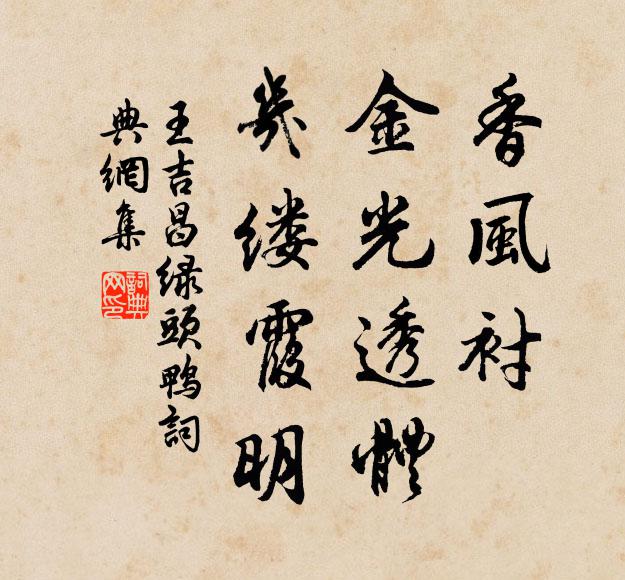 香風衬
金光透體
幾缕霞明
王吉昌绿頭鴨詞
典網集
詞典
网印